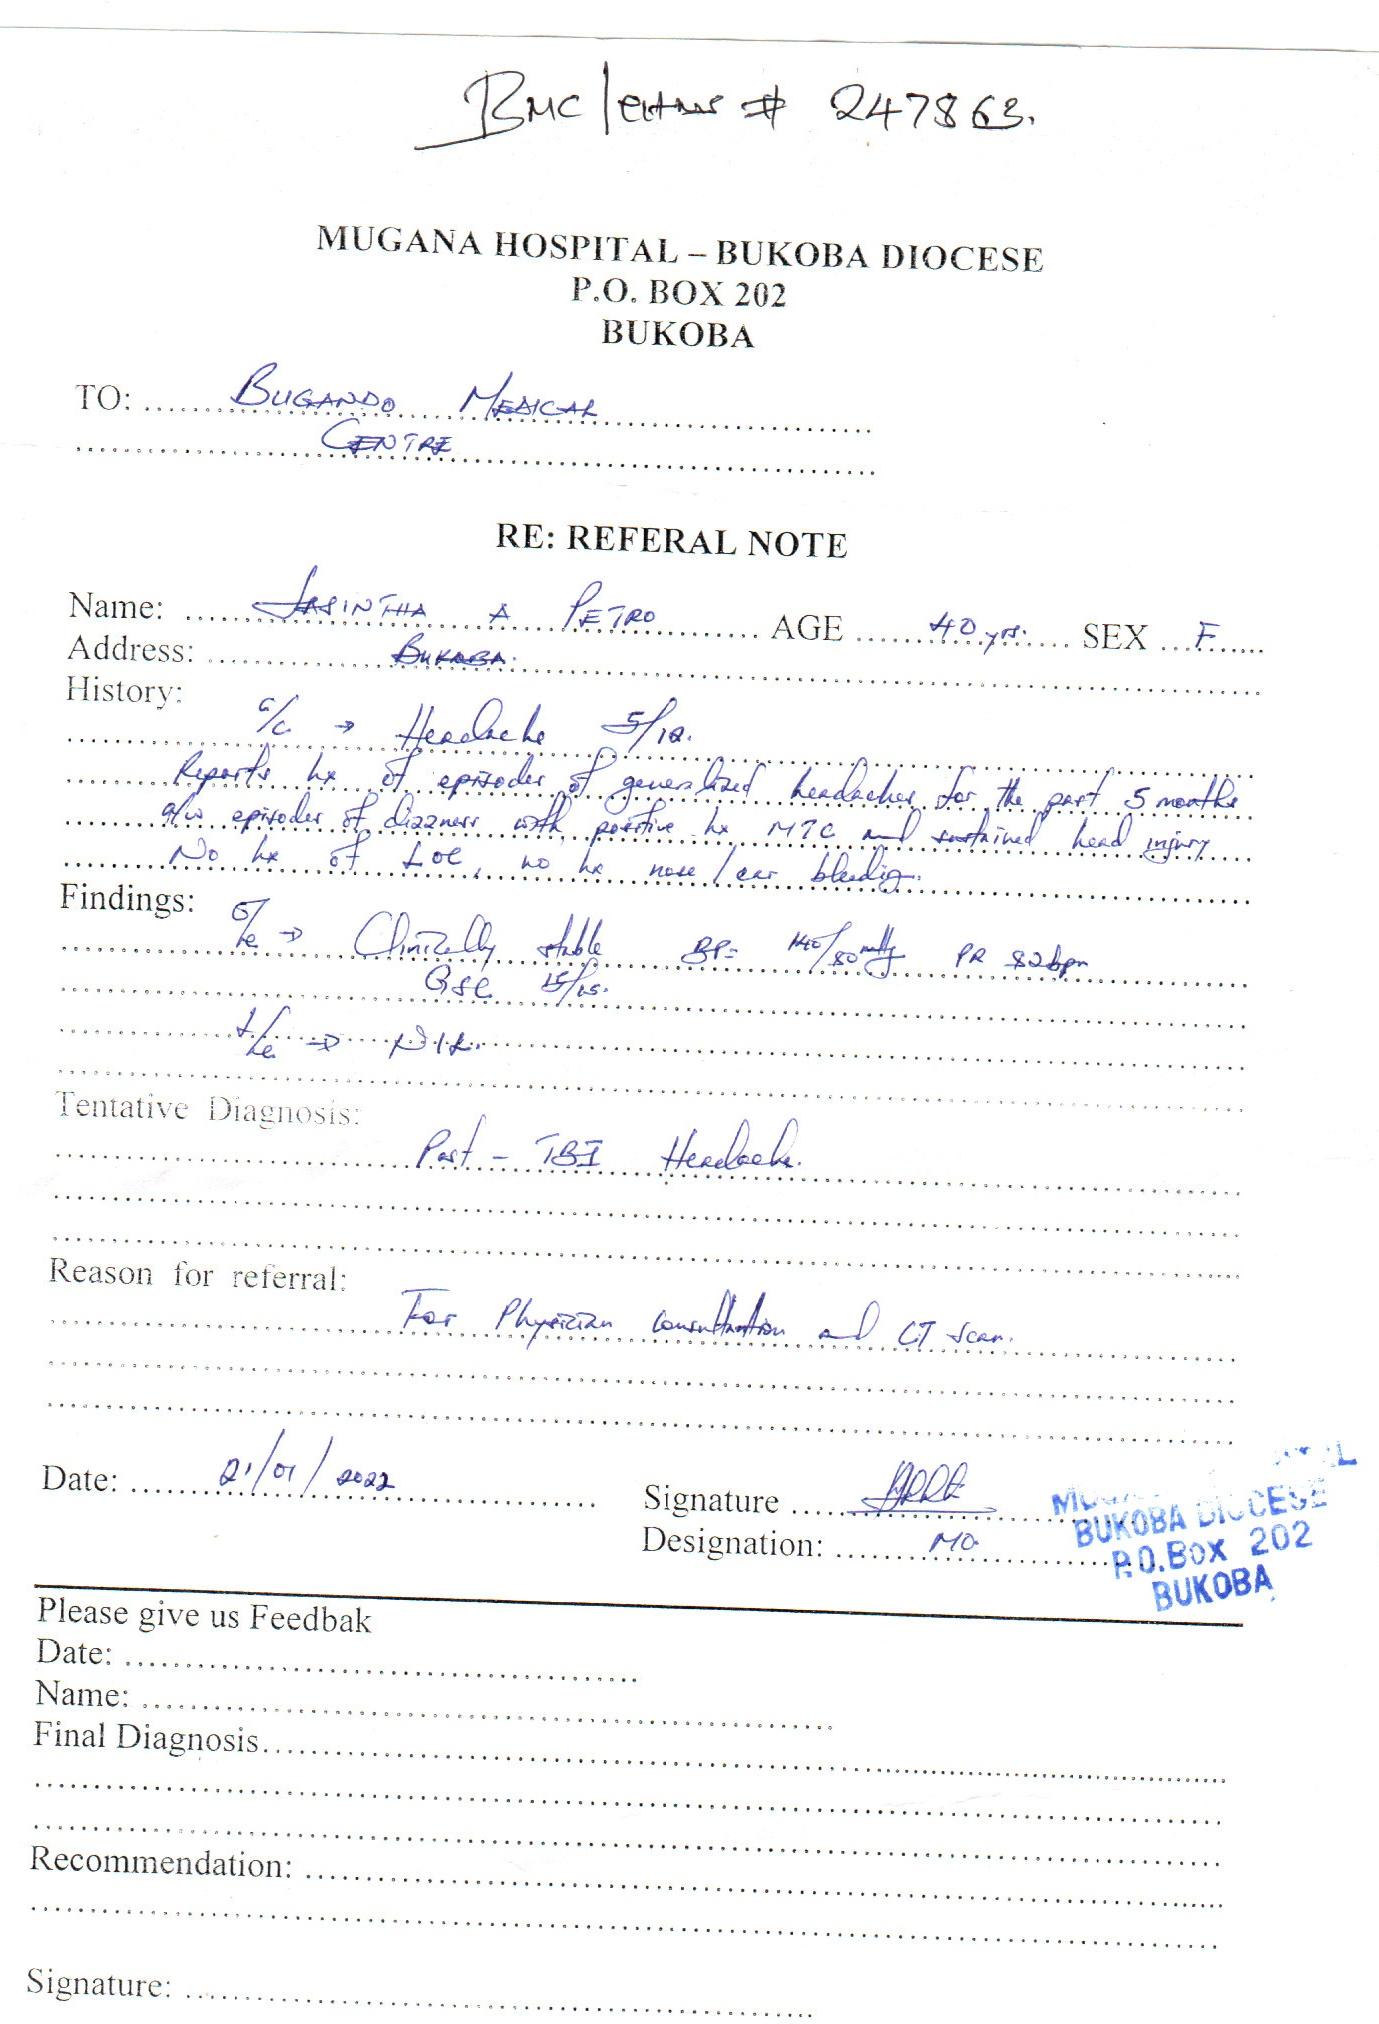 BMC / EHMS # 247863.
MUGANA HOSPITAL – BUKOBA DIOCESE
P.O. BOX 202
BUKOBA
TO: BUGANDO MEDICAL
CENTRE
RE: REFERAL NOTE
Name: JASINTHA A PETRO AGE 40 yrs. SEX F
Address: BUKOBA.
History:
c/c → Headache 5/12.
Reports hx of episodes of generalized headaches for the past 5 months
a/w episodes of dizzness with positive hx MTC and sustained head injury
No hx of LOC, no hx nose / ear bleeding.
Findings:
O/E → Clinically stable BP= 140/80mmHg PR 82bpm
GSC 15/15.
L/E → NIL.
Tentative Diagnosis:
Post - TBI Headache.
Reason for referral:
For Physician consultation and CT scan.
Date: 21/01/2022
Signature
Designation: MO.
BUKOBA DIOCESE
P.O.Box 202
BUKOBA
Please give us Feedbak
Date:
Name:
Final Diagnosis
Recommendation:
Signature: